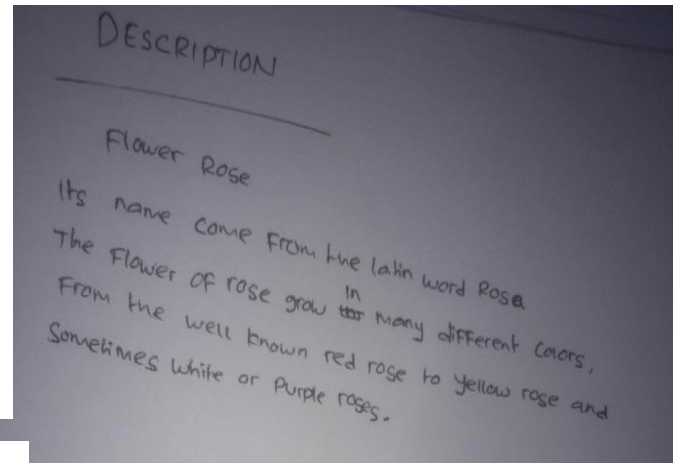 DESCRIPTION
Flower Rose
Its name come From the latin word Rosa
The Flower OF rose grow in many different Colors,
From the well known red rose to yellow rose and
Sometimes white or Purple roses.